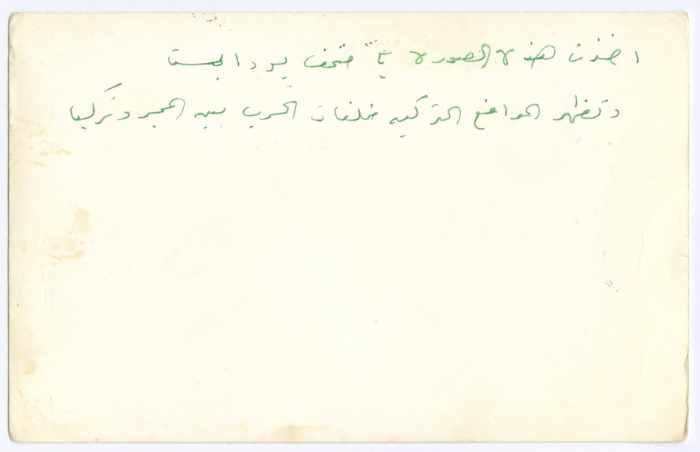 اخذت هذه الصورة في متحف بودابست
وتظهر المدافع التركيه مخلفات الحرب بين المجر وتركيا